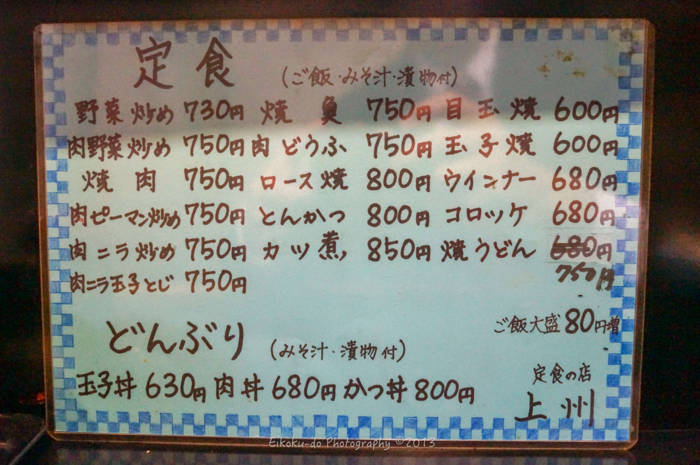 定食 (ご飯・みそ汁・漬物付)
野菜炒め 730円 焼魚 750円 目玉焼 600円
肉野菜炒め 750円 肉どうふ 750円 玉子焼 600円
焼肉 750円 ロース焼 800円 ウインナー 680円
肉ピーマン炒め 750円 とんかつ 800円 コロッケ 680円
肉ニラ炒め 750円 カツ煮 850円 焼うどん 680円
750円
肉ニラ玉子とじ 750円
ご飯大盛 80円増
どんぶり (みそ汁・漬物付)
玉子丼 630円 肉丼 680円 かつ丼 800円
定食の店
上州
Eikoku-do Photography ©2013